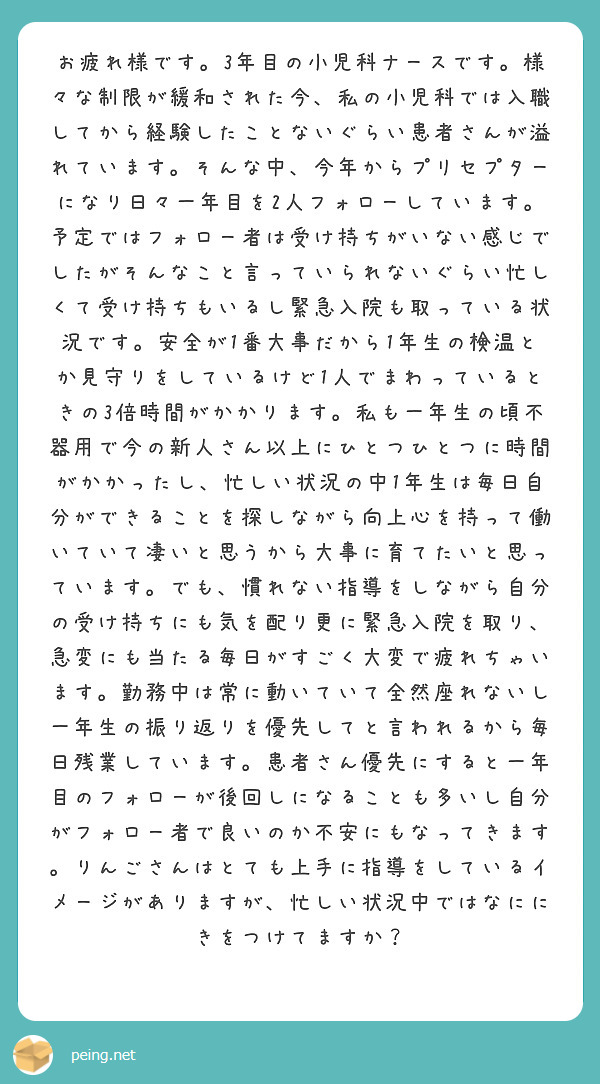 お疲れ様です。3年目の小児科ナースです。様
々な制限が緩和された今、私の小児科では入職
してから経験したことないぐらい患者さんが溢
れています。そんな中、今年からプリセプター
になり日々一年目を2人フォローしています。
予定ではフォロー者は受け持ちがいない感じで
したがそんなこと言っていられないぐらい忙し
くて受け持ちもいるし緊急入院も取っている状
況です。安全が1番大事だから1年生の検温と
か見守りをしているけど1人でまわっていると
きの3倍時間がかかります。私も一年生の頃不
器用で今の新人さん以上にひとつひとつに時間
がかかったし、忙しい状況の中1年生は毎日自
分ができることを探しながら向上心を持って働
いていて凄いと思うから大事に育てたいと思っ
ています。でも、慣れない指導をしながら自分
の受け持ちにも気を配り更に緊急入院を取り、
急変にも当たる毎日がすごく大変で疲れちゃい
ます。勤務中は常に動いていて全然座れないし
一年生の振り返りを優先してと言われるから毎
日残業しています。患者さん優先にすると一年
目のフォローが後回しになることも多いし自分
がフォロー者で良いのか不安にもなってきます
。りんごさんはとても上手に指導をしているイ
メージがありますが、忙しい状況中ではなにに
きをつけてますか？
peing.net